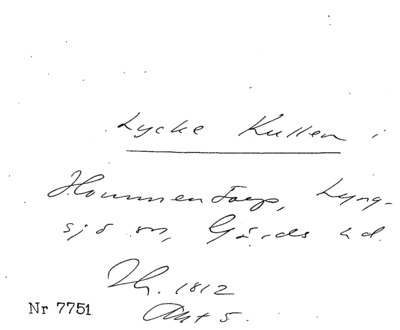 Lycke Kullen i
Hommentorp, Lyng-
sjö sn, Gärds hd.
Th. 1812
Akt 5.
Nr 7751